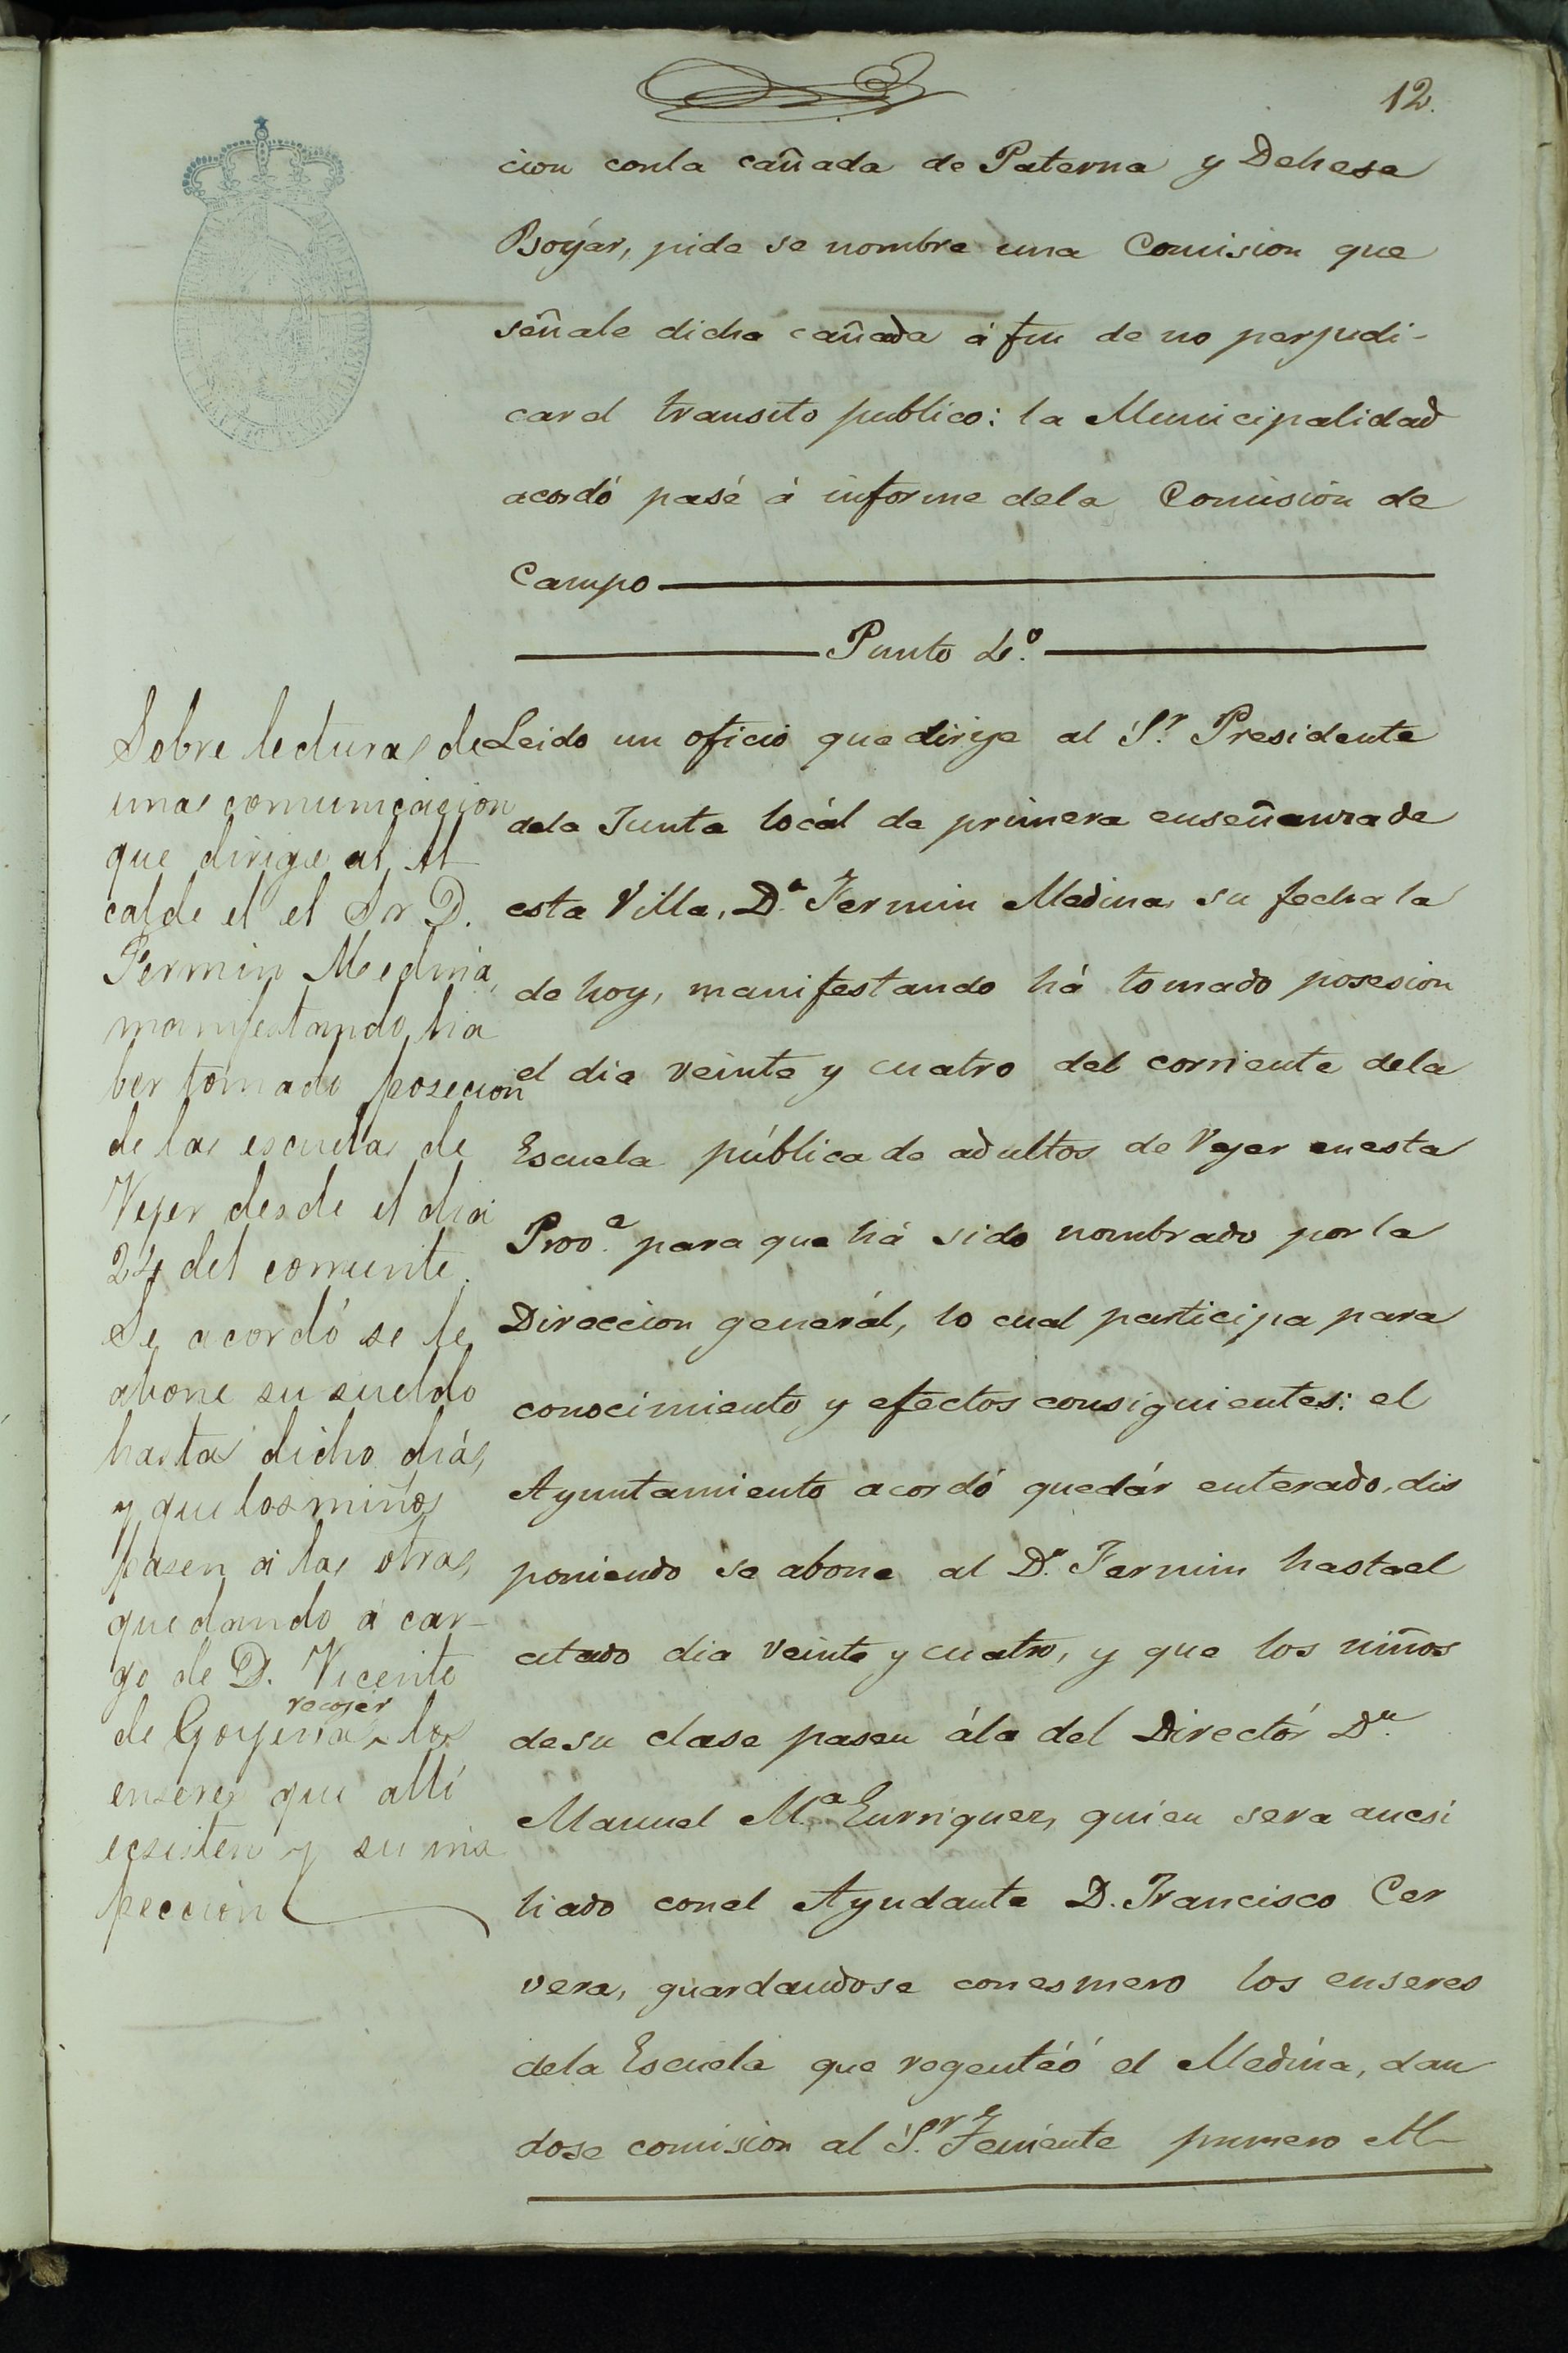 12.
cion conla cañada de Paterna y Dehesa
Boyár, pide se nombre una Comision que
señale dicha cañada á fin de no perjudi-
car el transito publico: la Municipalidad
acordó pasé á informe dela Comisión de
Campo
Punto 4.º
Leido un oficio que dirije al Sr. Presidente
dela Junta locál de primera enseñanza de
esta Villa, Dn. Fermin Medina, su fecha la
de hoy, manifestando há tomado posesion
el dia veinte y cuatro del corriente dela
Escuela pública de adultos de Vejer en esta
Prov.a para que há sido nombrado por la
Direccion generál, lo cual participa para
conocimiento y efectos consiguientes: el
Ayuntamiento acordó quedár enterado, dis
poniendo se abone al Dn. Fermin hasta el
citado dia veinte y cuatro, y que los niños
de su clase pasen ála del Directór Dn.
Manuel M.a Enrriquez, quien sera aucsi
liado con el Ayudante D. Francisco Cer
vera, guardandose con esmero los enseres
dela Escuela que regentéó el Medina, dan
dose comision al Sr. Teniente primero Al
Sobre lectura de
una comunicacion
que dirige al Al
calde el el Sr D.
Fermin Medina,
manifestando ha
ber tomado posecion
de la escuela de
Vejer desde el dia
24 del corriente.
Se acordó se le
abone su sueldo
hasta dicho dia,
y que los niños
pasen a la otra,
quedando á car-
go de D. Vicente
de Goyena recojer los
enseres que alli
ecsisten y su ins
peccion